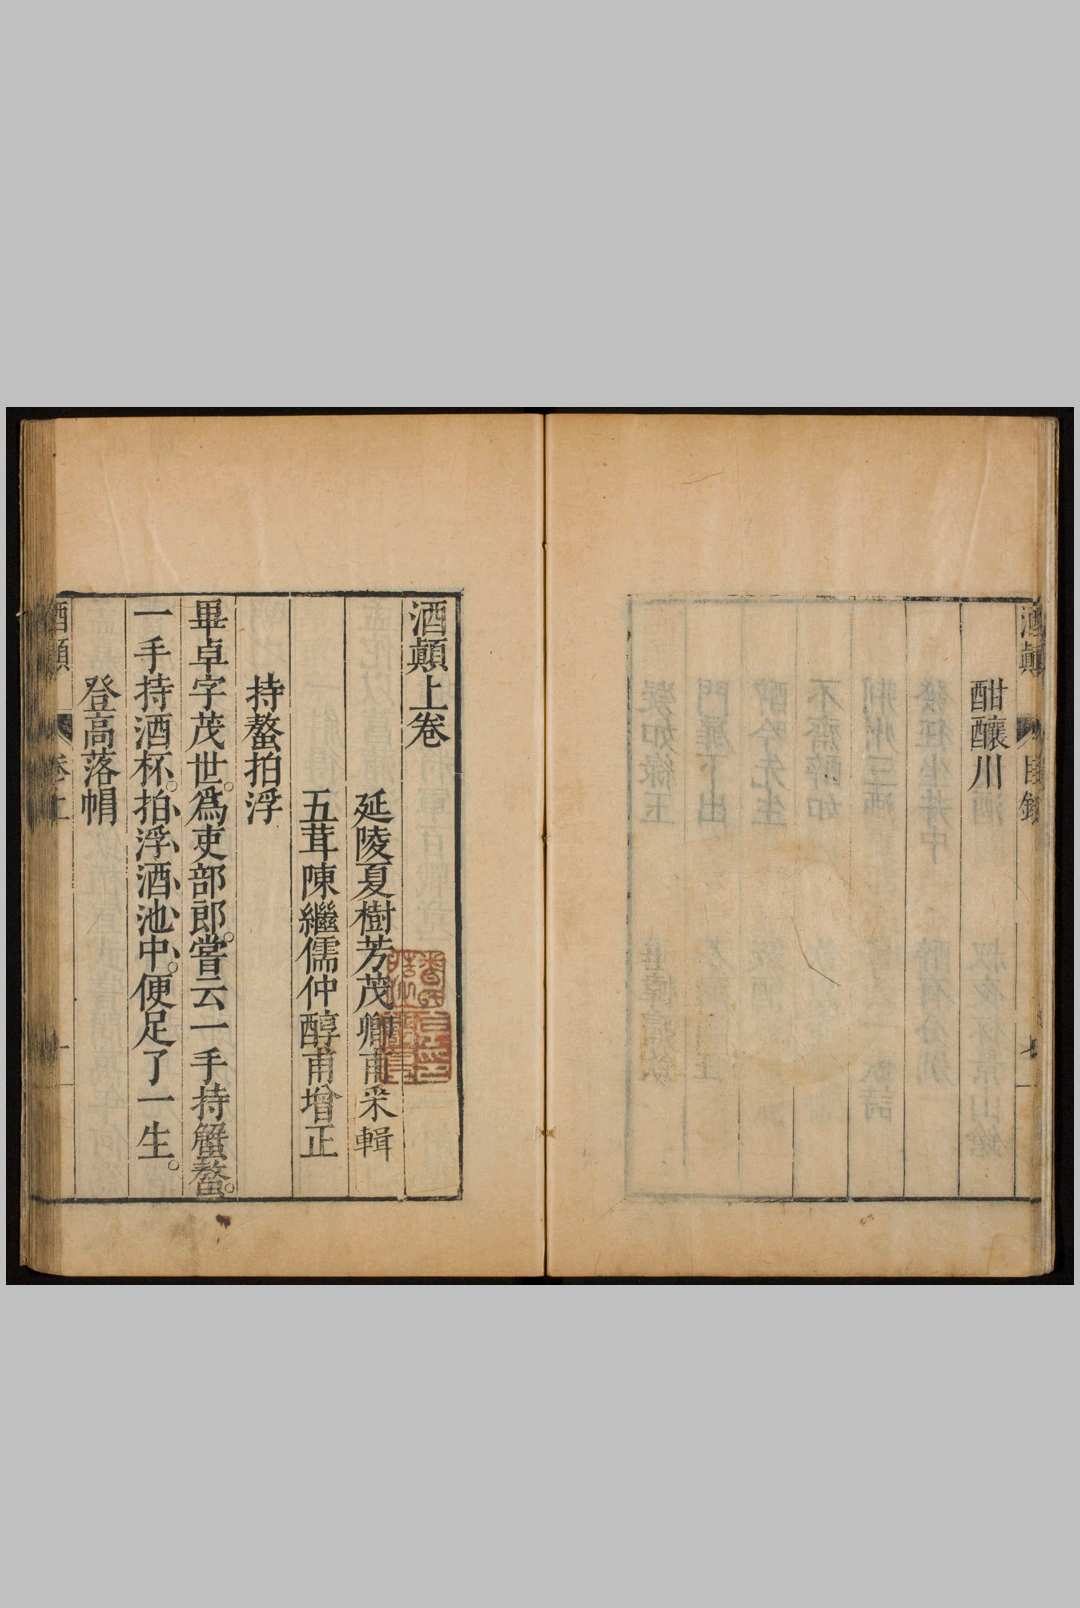 酒顛 目録
酣釀川
酒顛上卷
延陵夏樹芳茂卿甫釆輯
五茸陳繼儒仲醇甫增正
持螯拍浮
畢卓字茂世。爲吏部郎。嘗云一手持蟹螯。
一手持酒杯。拍浮酒池中。便足了一生。
登高落帽
酒顛 卷上 一